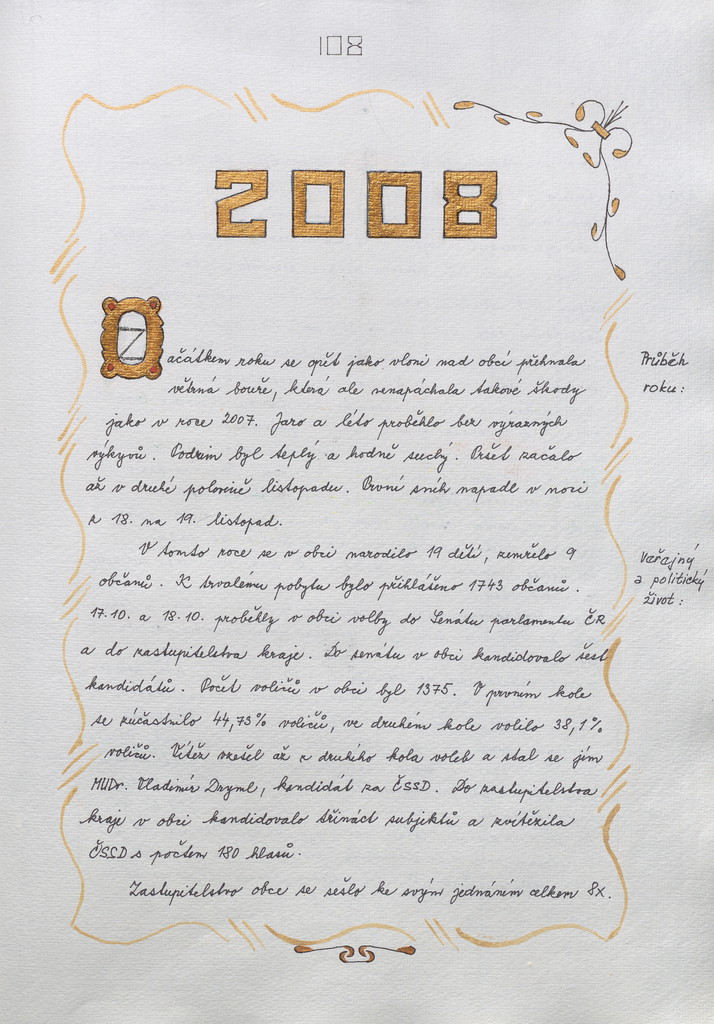 108
2008
Začátkem roku se opět jako vloni nad obcí přehnala
Průběh
větrná bouře, která ale nenapáchala takové škody
roku:
jako v roce 2007. Jaro a léto proběhlo bez výrazných
výkyvů. Podzim byl teplý a hodně suchý. Pršet začalo
až v druhé polovině listopadu. První sníh napadl v noci
z 18. na 19. listopad.
V tomto roce se v obci narodilo 19 dětí, zemřelo 9
Veřejný
občanů. K trvalému pobytu bylo přihlášeno 1743 občanů.
a politický
život:
17.10. a 18.10. proběhly v obci volby do Senátu parlamentu ČR
a do zastupitelstva kraje. Do senátu v obci kandidovalo šest
kandidátů. Počet voličů v obci byl 1375. V prvním kole
se zúčastnilo 44,73% voličů, ve druhém kole volilo 38,1%
voličů. Vítěz vzešel až z druhého kola voleb a stal se jím
MUDr. Vladimír Dryml, kandidát za ČSSD. Do zastupitelstva
kraje v obci kandidovalo třináct subjektů a zvítězila
ČSSD s počtem 180 hlasů.
Zastupitelstvo obce se sešlo ke svým jednáním celkem 8x.